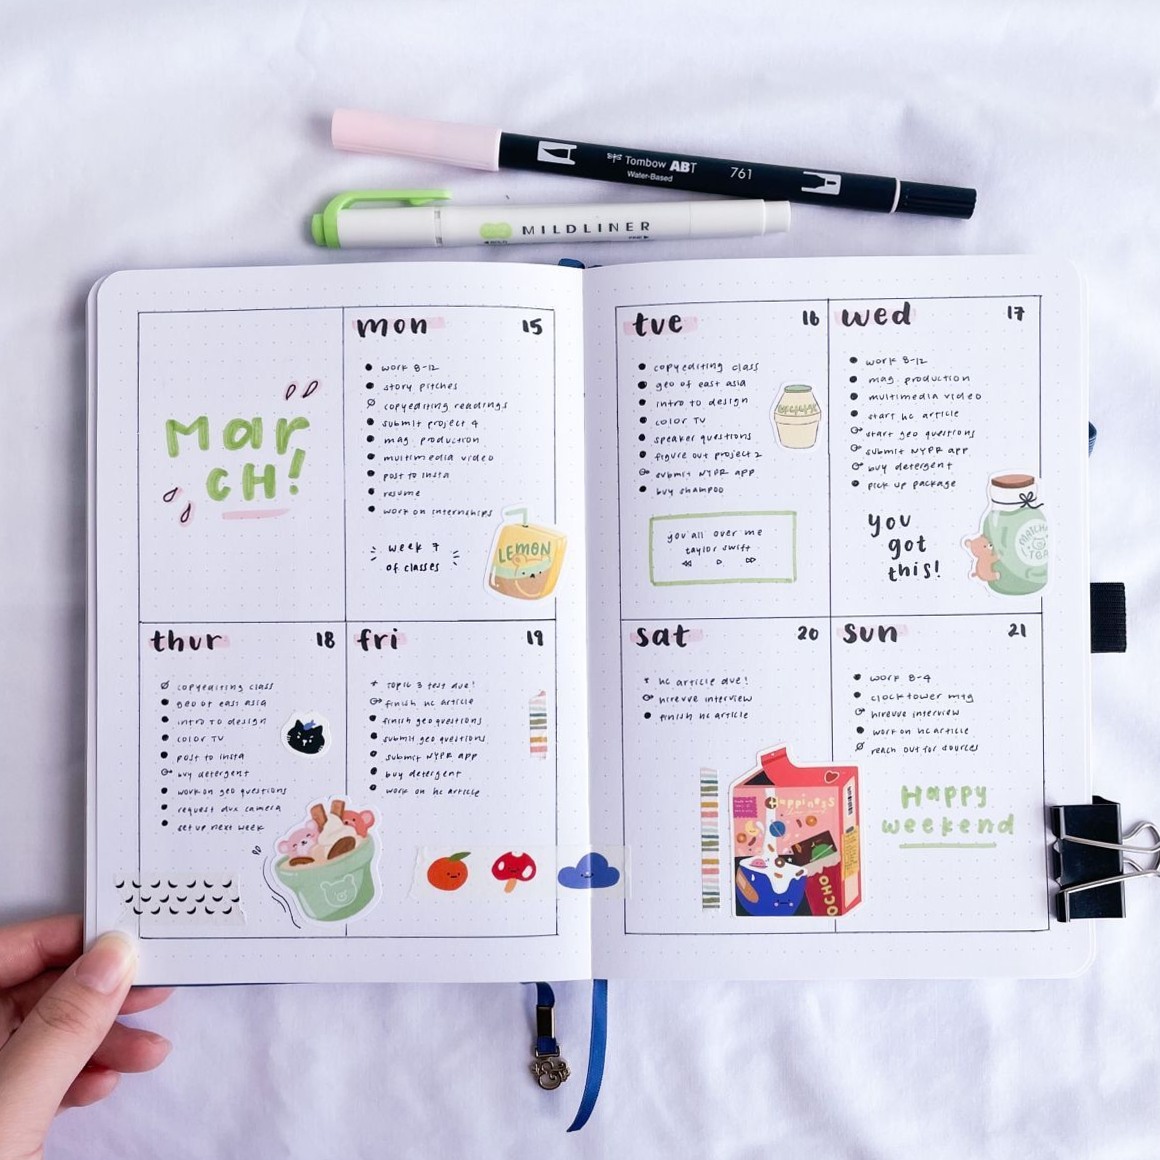 Tombow ABT 761
Water-Based
MILDLINER
March!
mon 15
work 8-12
story pitches
copyediting readings
submit project 4
mag. production
multimedia video
post to insta
resume
work on internships
week 7
of classes
LEMON
tue 16
copyediting class
geo of east asia
intro to design
color TV
speaker questions
figure out project 2
submit NYPR app
buy shampoo
you all over me
taylor swift
wed 17
work 8-12
mag. production
multimedia video
start hc article
start geo questions
submit NYPR app
buy detergent
pick up package
you
got
this!
MATCHA
TEA
thur 18
copyediting class
geo of east asia
intro to design
color TV
post to insta
buy detergent
work on geo questions
request dvx camera
set up next week
fri 19
* Topic 3 test due!
finish hc article
finish geo questions
submit geo questions
submit NYPR app
buy detergent
work on hc article
sat 20
* hc article due!
hirevue interview
finish hc article
Happiness
OCHO
sun 21
work 8-4
clocktower mtg
hirevue interview
work on hc article
reach out for sources
Happy
weekend